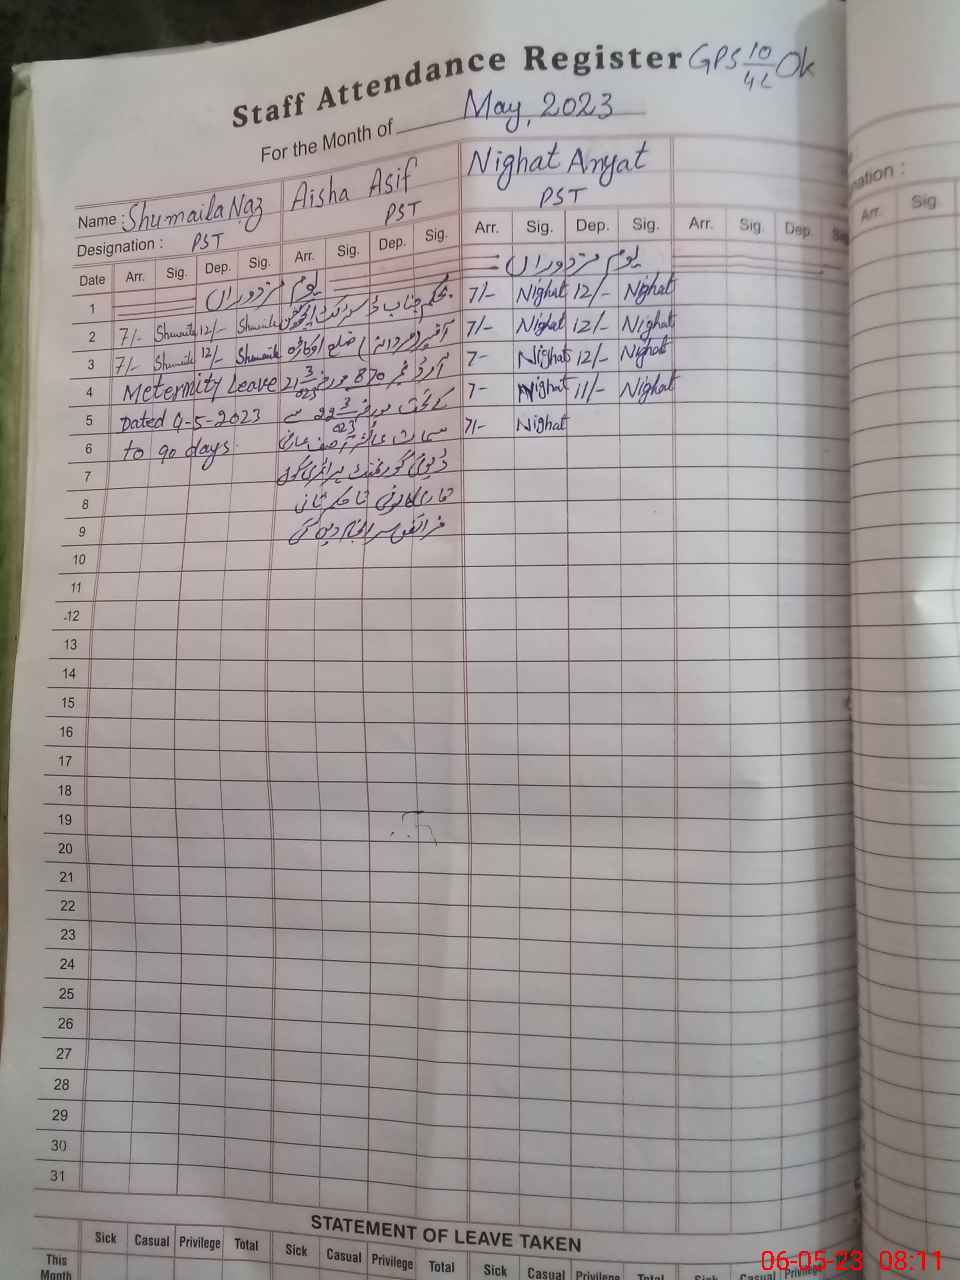 Staff Attendance Register GPS 10/4L Ok
For the Month of May, 2023
Name : Shumaila Naz Aisha Asif Nighat Anyat
Designation : PST PST PST
Date Arr. Sig. Dep. Sig. Arr. Sig. Dep. Sig. Arr. Sig. Dep. Sig. Arr. Sig. Dep.
1 یوم مزدوراں یوم مزدوراں
2 7/- Shumaila 12/- Shumaila 7/- Nighat 12/- Nighat
3 7/- Shumaila 12/- Shumaila ضلع اوکاڑہ 7/- Nighat 12/- Nighat
4 Meternity Leave آرڈر نمبر 870 مورخہ 21 3 023 7- Nighat 12/- Nighat
5 Dated 4-5-2023 کے تحت مورخہ 22 3 023 سے 7- Nighat 11/- Nighat
6 to 90 days. 7/- Nighat
7
8 تا حکم ثانی
9 فرائض سرانجام دیں گی
10
11
12
13
14
15
16
17
18
19
20
21
22
23
24
25
26
27
28
29
30
31
STATEMENT OF LEAVE TAKEN
Sick Casual Privilege Total Sick Casual Privilege Total Sick Casual Privilege Total Sick Casual Privilege
This Month
nation :
Arr. Sig.
06-05-23 08:11